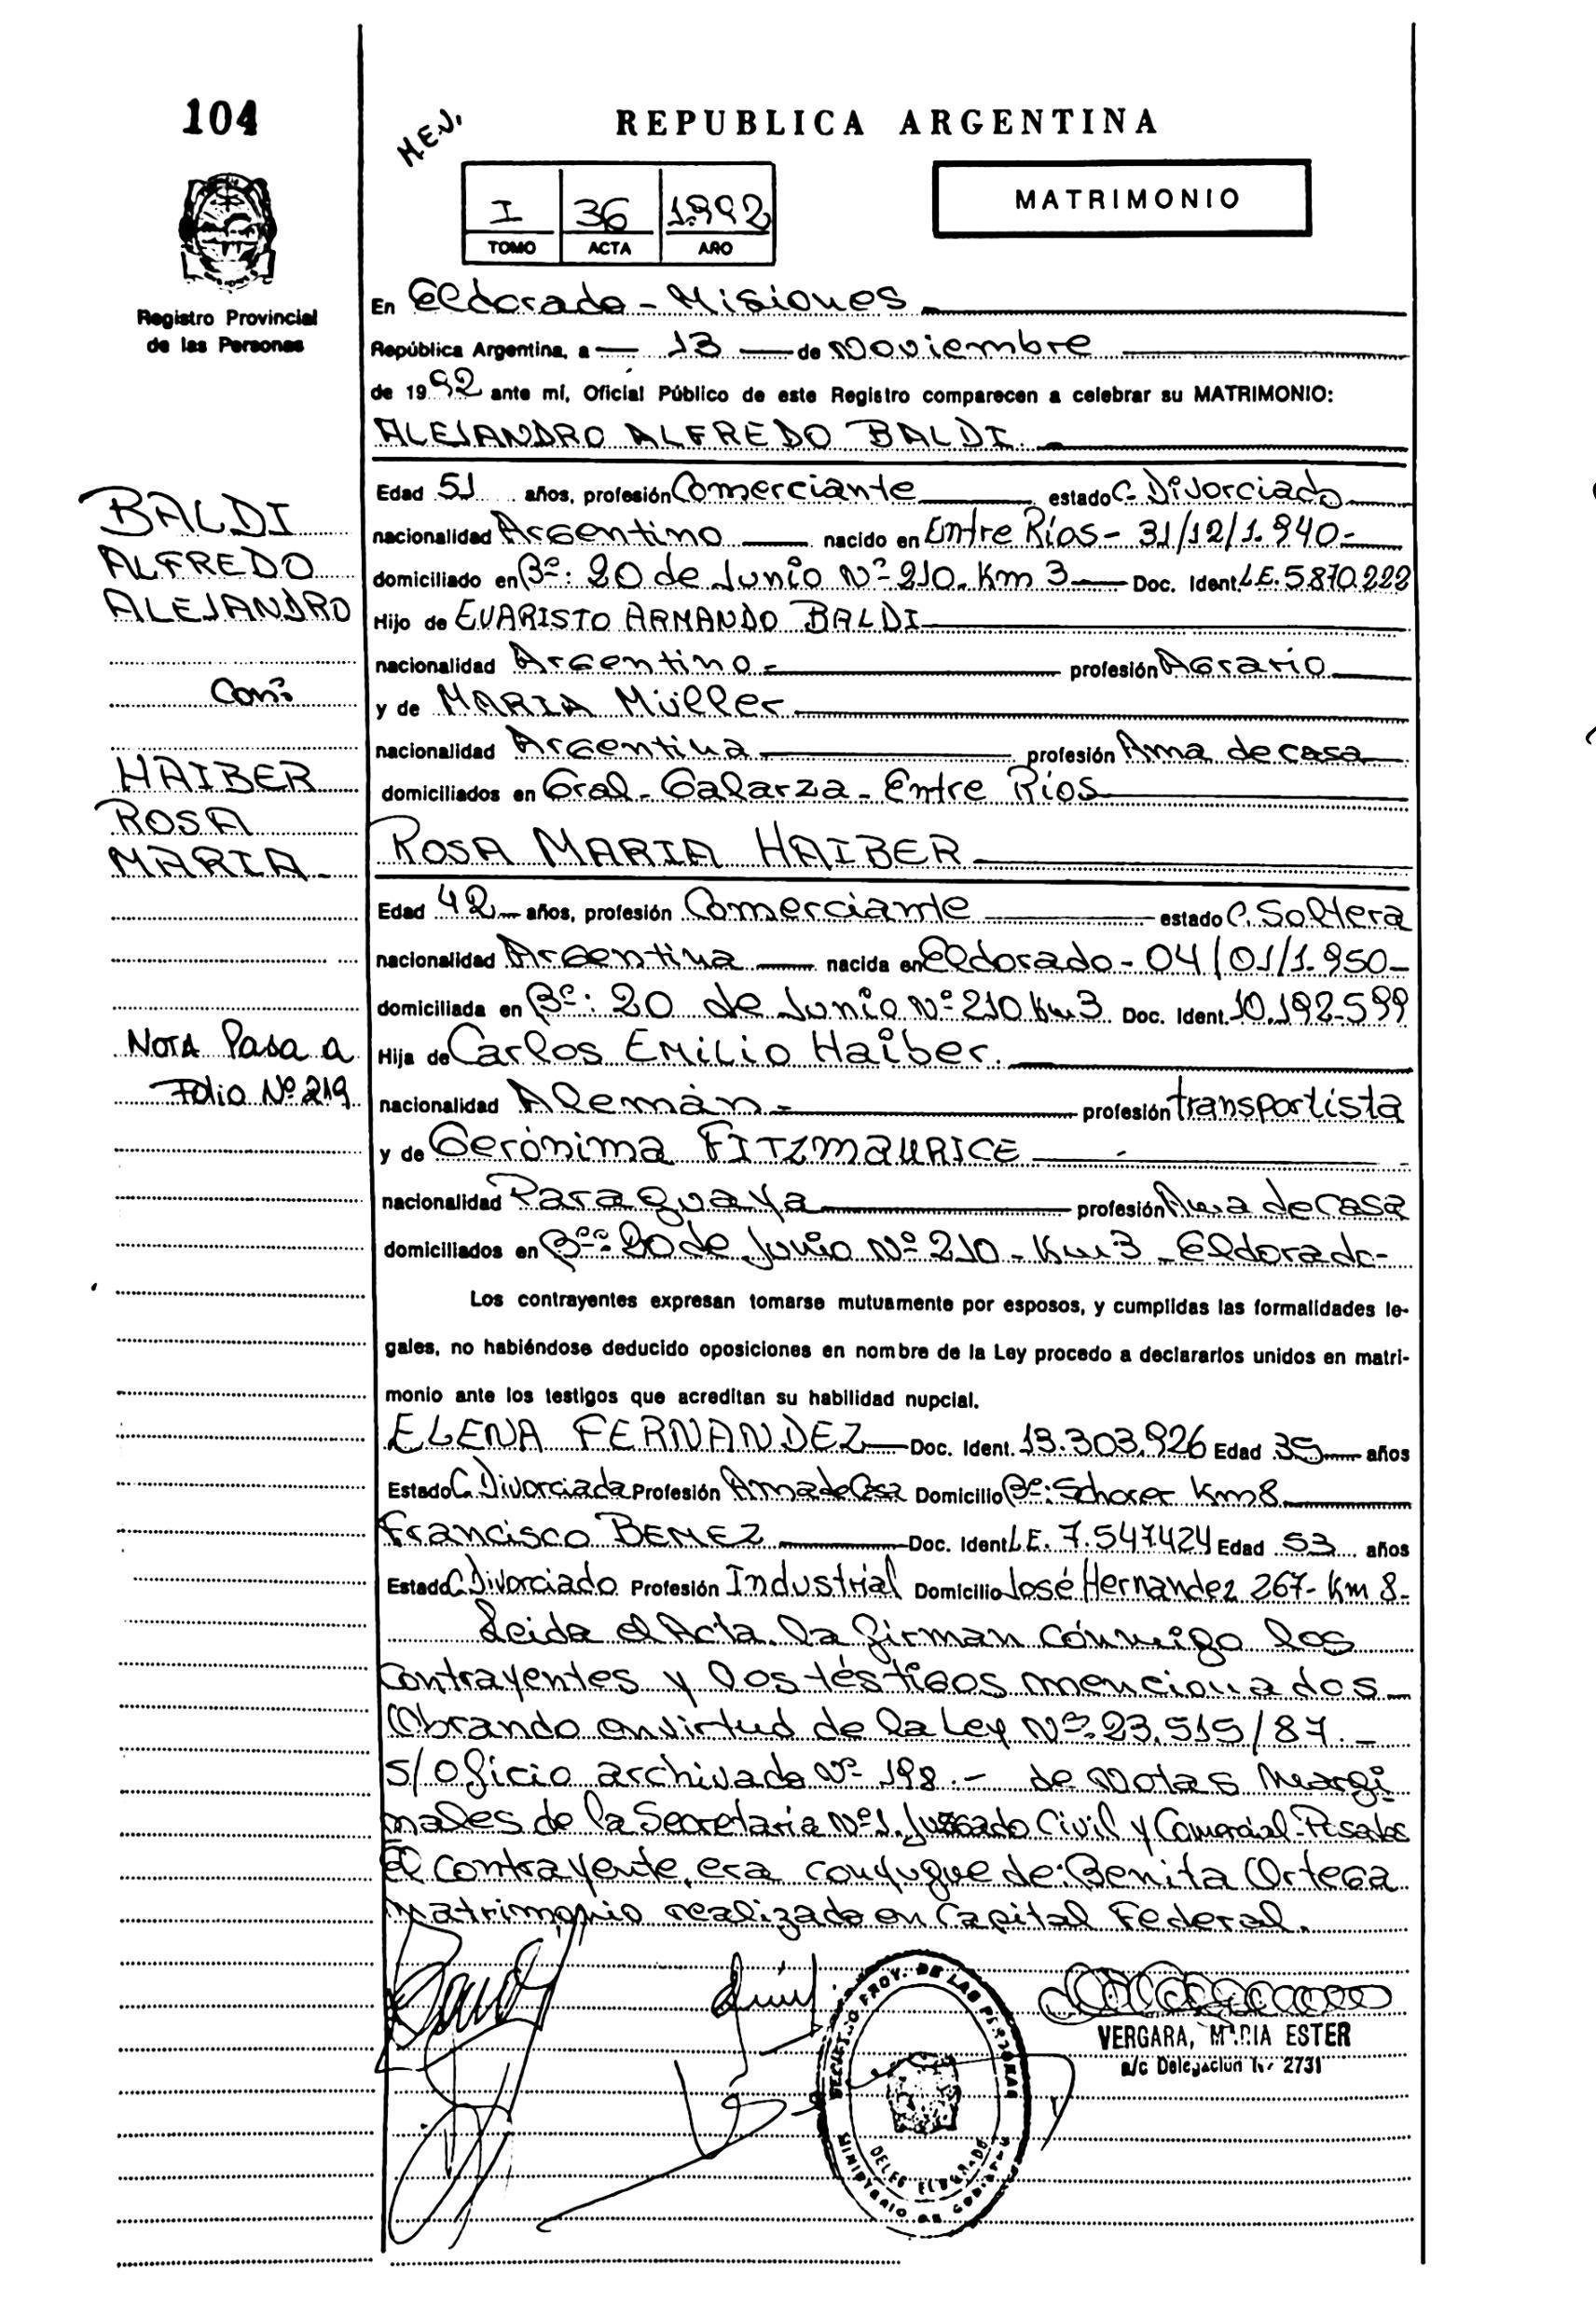 104
H.E.J.
REPUBLICA ARGENTINA
I 36 1.992
TOMO ACTA AÑO
MATRIMONIO
Registro Provincial
de las Personas
En Eldorado - Misiones
República Argentina, a 13 de Noviembre
de 1992 ante mí, Oficial Público de este Registro comparecen a celebrar su MATRIMONIO:
ALEJANDRO ALFREDO BALDI.
Edad 51 años, profesión Comerciante estado C. Divorciado
nacionalidad Argentino nacido en Entre Ríos - 31/12/1.940.-
domiciliado en Bº: 20 de Junio Nº 210. Km 3 Doc. Ident. L.E. 5.870.222
Hijo de EVARISTO ARMANDO BALDI
nacionalidad Argentino - profesión Agrario
y de MARIA Müller
nacionalidad Argentina profesión Ama de casa
domiciliados en Gral - Galarza - Entre Ríos
ROSA MARIA HAIBER
Edad 42 años, profesión Comerciante estado C. Soltera
nacionalidad Argentina nacida en Eldorado - 04/01/1.950-
domiciliada en Bº: 20 de Junio Nº 210 Km 3 Doc. Ident. 10.192.599
Hija de Carlos Emilio Haiber.
nacionalidad Alemán - profesión transportista
y de Gerónima FITZMAURICE
nacionalidad Paraguaya profesión Ama de casa
domiciliados en Bº: 20 de Junio Nº 210 - Km 3 - Eldorado -
BALDI
ALFREDO
ALEJANDRO
Con:
HAIBER
ROSA
MARIA -
NOTA Pasa a
Folio Nº 219
Los contrayentes expresan tomarse mutuamente por esposos, y cumplidas las formalidades le-
gales, no habiéndose deducido oposiciones en nombre de la Ley procedo a declararlos unidos en matri-
monio ante los testigos que acreditan su habilidad nupcial.
ELENA FERNANDEZ Doc. Ident. 13.303.926 Edad 35 años
Estado C. Divorciada Profesión Ama de Casa Domicilio Bº: Schorer Km 8
Francisco BENEZ Doc. Ident L.E. 7.547.424 Edad 53 años
Estado C. Divorciado Profesión Industrial Domicilio José Hernandez 267 - Km 8 -
Leida el Acta. la firman cónmigo los
Contrayentes y los téstigos mencionados -
Obrando en virtud de la Ley Nº 23.515/87. -
S/Oficio archivado Nº 198. - de Notas Margi
nales de la Secretaria Nº 1. Juzgado Civil y Comercial - Posadas
El contrayente, era conyugue de: Benita Ortega
Matrimonio realizado en Capital Federal.
REGISTRO PROV. DE LAS PERSONAS
DELEG ELDORADO
MINISTERIO DE GOBIERNO
VERGARA, MARIA ESTER
a/c Delegación Nº 2731